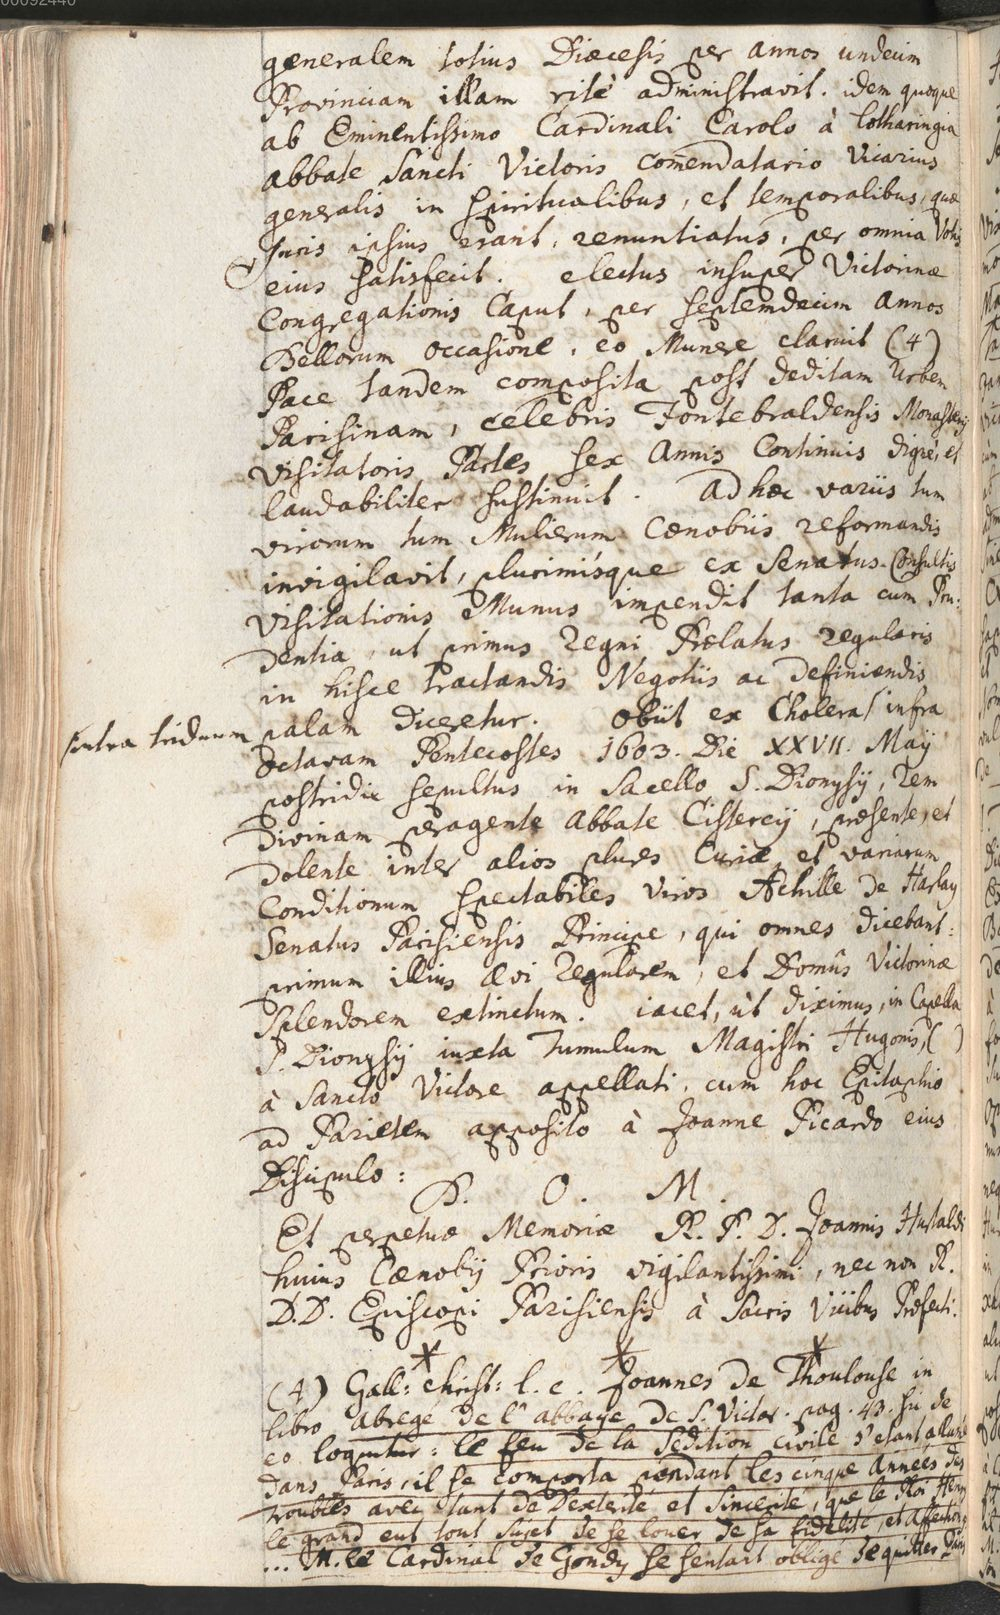 00092440
generalem totius Diæcesis per annos undecim
Provinciam illam ritè administravit. idem quoque
ab Eminentissimo Cardinali Carolo à Lotharingia
abbate Sancti Victoris com̄endatario Vicarius
generalis in spiritualibus, et temporalibus, quæ
Iuris ipsius erant, renuntiatus, per omnia Votis
eius satisfecit. electus insuper Victorinæ
Congregationis Caput, per septemdecim Annos
Bellorum occasione, eo Munere claruit (4)
Pace tandem composita post deditam Urbem
Parisinam, celebris Fontebraldensis Monasterij
Visitatoris Partes sex Annis Continuis dignè, et
laudabiliter sustinuit. Ad hæc variis tum
virorum tum Mulierum Cænobiis reformandis
invigilavit, plurimisque ex Senatus-Consultis
Visitationis Munus impendit tanta cum Pru:
dentia, ut primus Regni Prælatus regularis
in hisce tractandis Negotiis ac definiendis
palam diceretur. Obiit ex Cholera/ infra
/intra triduum
octavam Pentecostes 1603. Die XXVII. Maÿ
postridie sepultus in Sacello S. Dionysÿ, rem
divinam peragente Abbate Cistercÿ, præsente, et
dolente inter alios plures Curiæ, et variarum
Conditionum spectabiles viros Achille de Harlay
Senatus Parisiensis Principe, qui omnes dicebant:
primum illius Ævi Regularem, et Domûs Victorinæ
Splendorem extinctum. iacet, ùt diximus, in Capella
S. Dionysÿ iuxta Tumulum Magistri Hugonis, ( )
à Sancto Victore appellati, cum hoc Epitaphio
ad Parietem apposito à Joanne Picardo eius
Discipulo:
D. O. M.
Et perpetuæ Memoriæ R. P. D. Joannis Hustaldi
huius Cænobÿ Prioris vigilantissimi, nec non R.
D.D. Episcopi Parisiensis à Sacris Vicibus Præfecti.
* * *
(4) Gall: christ: l. c. Joannes de Thoulouse in
libro abregé de l'abbaye de S. Victor. pag. 43. sic de
eo loquitur: le feu de la sedition civile s'etant allumé
dans Paris, il se comporta pendant les cinque Années des
troubles avec tant de Dexterité et sincerité, que le Roi Henry
le grand eut tout sujet de se louer de sa fidelité, et affection.
... M. le Cardinal de Gondy se sentant obligé de quitter Paris